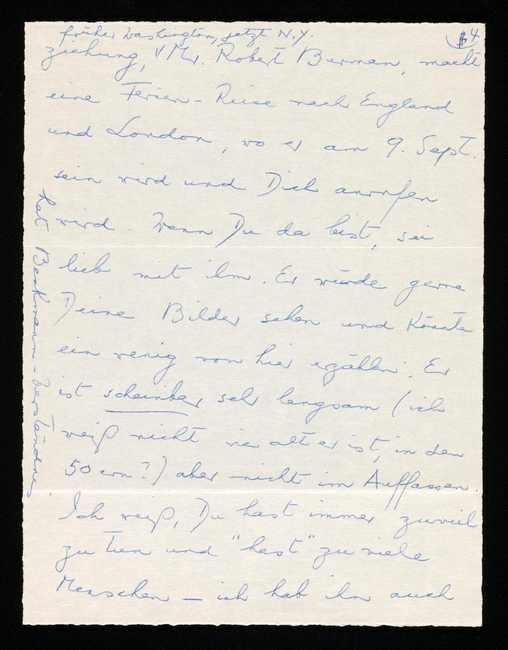 früher Washington, jetzt N.Y.
4
ziehung, Mr. Robert Burman, macht
eine Ferien-Reise nach England
und London, wo er am 9. Sept.
sein wird und Dich anrufen
wird. Wenn Du da bist, sei
lieb mit ihm. Er würde gerne
Deine Bilder sehen und könnte
ein wenig von hier erzählen. Er
ist scheinbar sehr langsam (ich
weiß nicht wie alt er ist, in den
50ern?) aber nicht im Auffassen.
Ich weiß, Du hast immer zuviel
zu tun und "hast" zu viele
Menschen – ich hab ihn auch
hat Beckmann-Verständnis